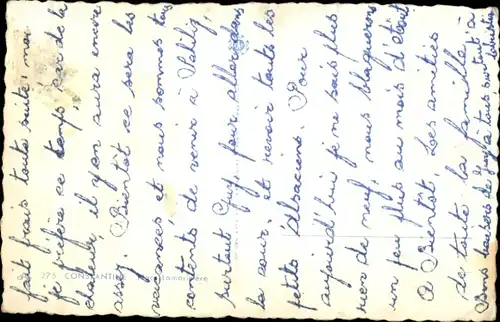 fait frais toute suite, moi
je préfère ce temps, par de la
chaude, il y en aura encore
assez. Bientôt ce sera les
vacances et nous sommes tous
contents de venir à
surtout Guy, pour aller dans
la cour, et revoir toute les
petits alsaciens. Pour
aujourd'hui je ne sais plus
rien de neuf, nous blaguerons
un peu plus au mois d'Août
à Bientôt. Les amities
de toute la famille
Bons baisers de Guy à tous surtout à
275 CONSTANTINE Lamoricière